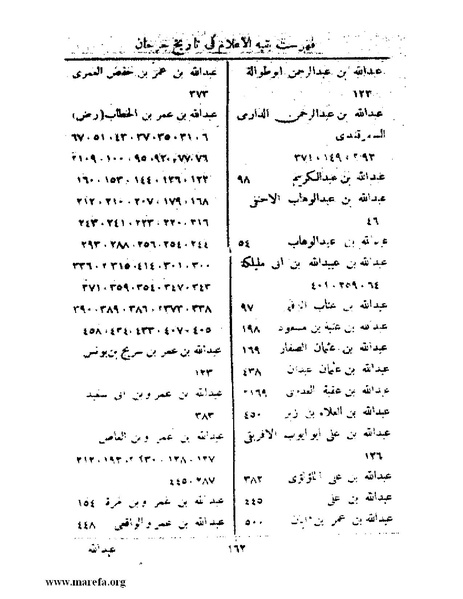 فهرست بقية الأعلام في تاريخ جرجان
عبدالله بن عبدالرحمن ابوطوالة
١٢٣
عبدالله بن عبدالرحمن الدارمى
السمرقندى
٢٩٣، ١٤٩، ٣٧١
عبدالله بن عبدالكريم ٩٨
عبدالله بن عبدالوهاب
٤٦
عبدالله بن عبدالوهاب ٥٤
عبدالله بن عبيدالله بن ابى مليكة
٦٤، ٢٥٩، ٤٠١
عبدالله بن عتاب ٩٧
عبدالله بن عتبة بن مسعود ١٩٨
عبدالله بن عثمان الصفار ١٦٩
عبدالله بن عثمان عبدان ٤٣٨
عبدالله بن عقبة
عبدالله بن العلاء بن زبر ٤٥٠
عبدالله بن على ابو ايوب الافريقى
١٢٦
عبدالله بن على اللؤلؤى ٣٨٢
عبدالله بن على ٤٤٥
عبدالله بن عمر بن ابان ٥٠٠
عبدالله بن عمر بن حفص العمرى
٣٧٣
عبدالله بن عمر بن الخطاب (رض)
٦، ٣١، ٣٥، ٣٧، ٤٣، ٥١، ٦٧
٧٦، ٧٧، ٩٢، ٩٥، ١٠٠، ٢١٠٩
١٢٢، ١٣٦، ١٤٤، ١٥٣، ١٦٠
١٦٨، ١٧٩، ٢٠٧، ٢١٠، ٢١٢
٢٢٠، ٢٢٣، ٢٤١، ٢٤٣
٢٤٤، ٢٥٤، ٢٥٦، ٢٨٨، ٢٩٣
٣٠٠، ٣٠١، ٣٣٦
٣٤٣، ٣٤٧، ٣٥٤، ٣٥٩، ٣٧١
٣٣٨، ٢٣٧٣، ٣٨٦، ٣٨٩، ٣٩٠
٤٠٥، ٤٠٧، ٤٣٣، ٤٣٤، ٤٥٨
عبدالله بن عمر بن سريج بن يونس
١٢٣
عبدالله بن عمرو بن ابى سعيد
٣٨٣
عبدالله بن عمرو بن العاص
١٢٧، ١٢٨، ١٩٣، ٢١٢
٢٨٧، ٤٤٥
عبدالله بن عمرو بن مرة ١٥٤
عبدالله بن عمرو الواقعى ٤٤٨
١٦٢
عبدالله
www.marefa.org